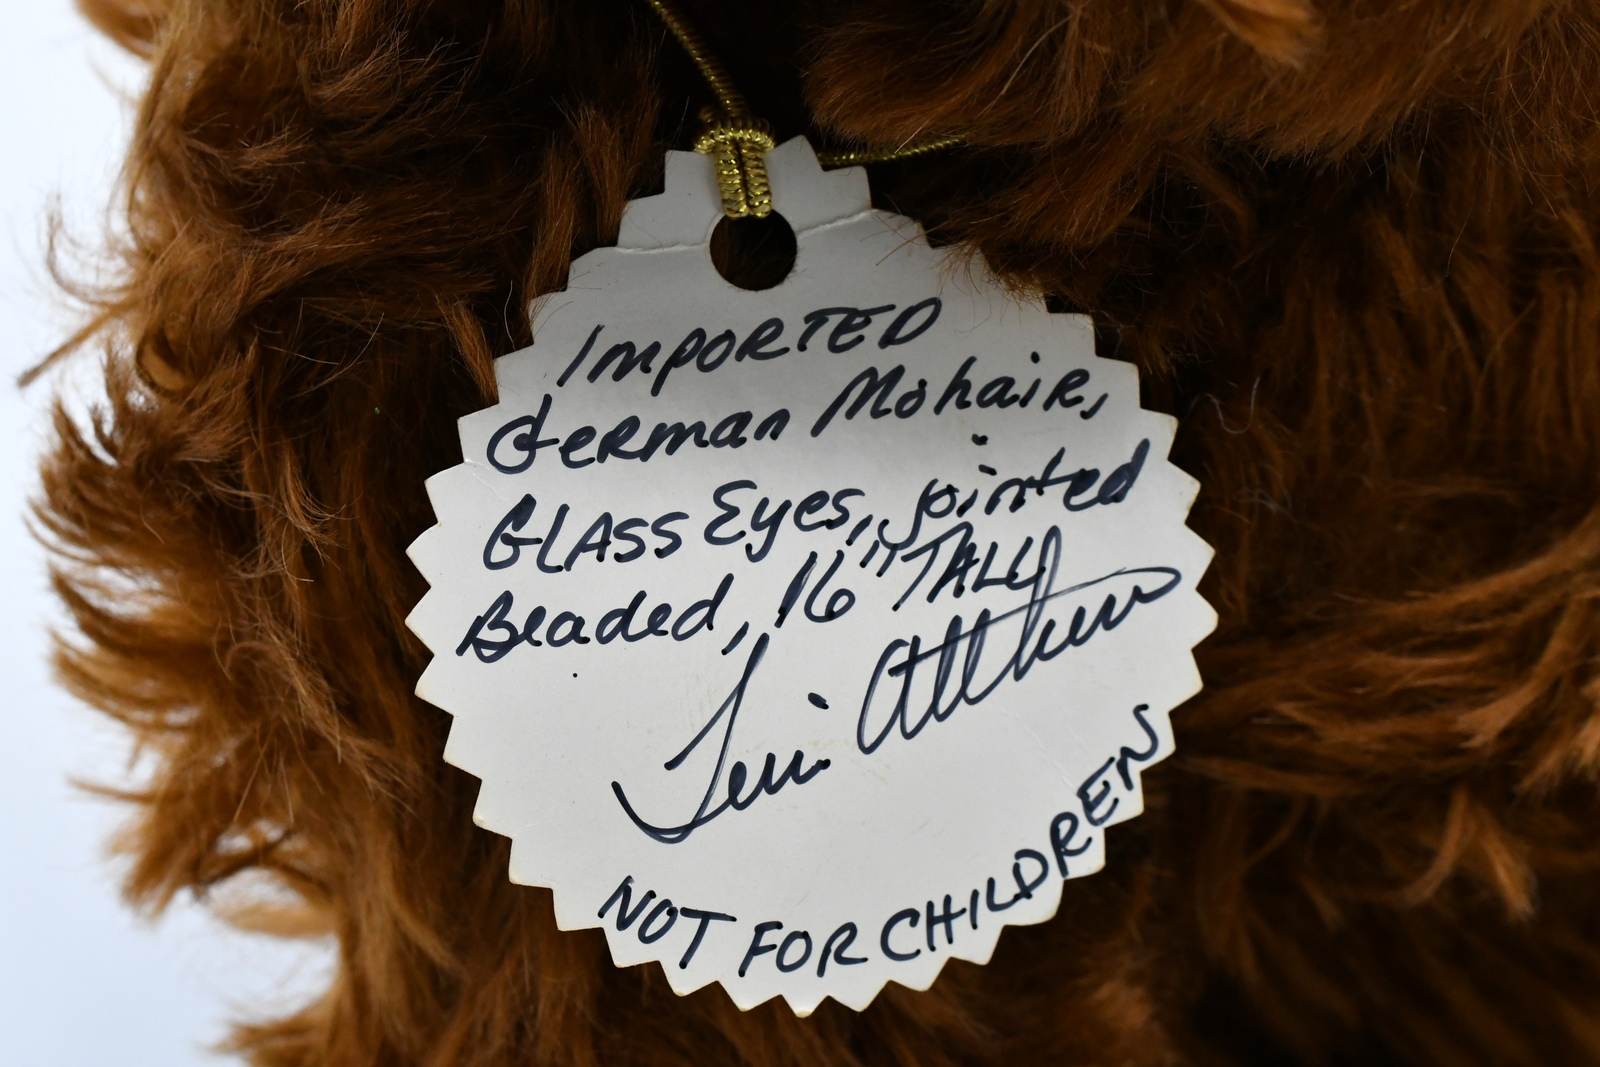 IMPORTED
German Mohair,
GLASS Eyes, jointed
Beaded, 16" TALL
Teri
NOT FOR CHILDREN